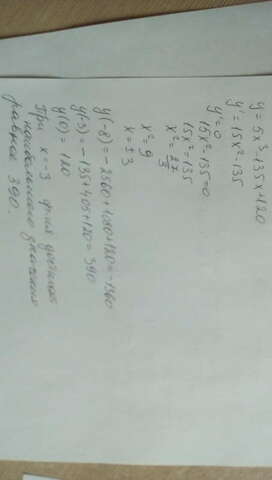 y = 5x³-135x+120
y' = 15x²-135
y' = 0
15x²-135=0
15x²=135
x² = 27/3
x²= 9
x = ±3
y(-8) = -2560+1080+120=-1360
y(-3) = -135+405+120 = 390
y(0) = 120
При x=-3 функ. достигает
наибольшего значения
равное 390.